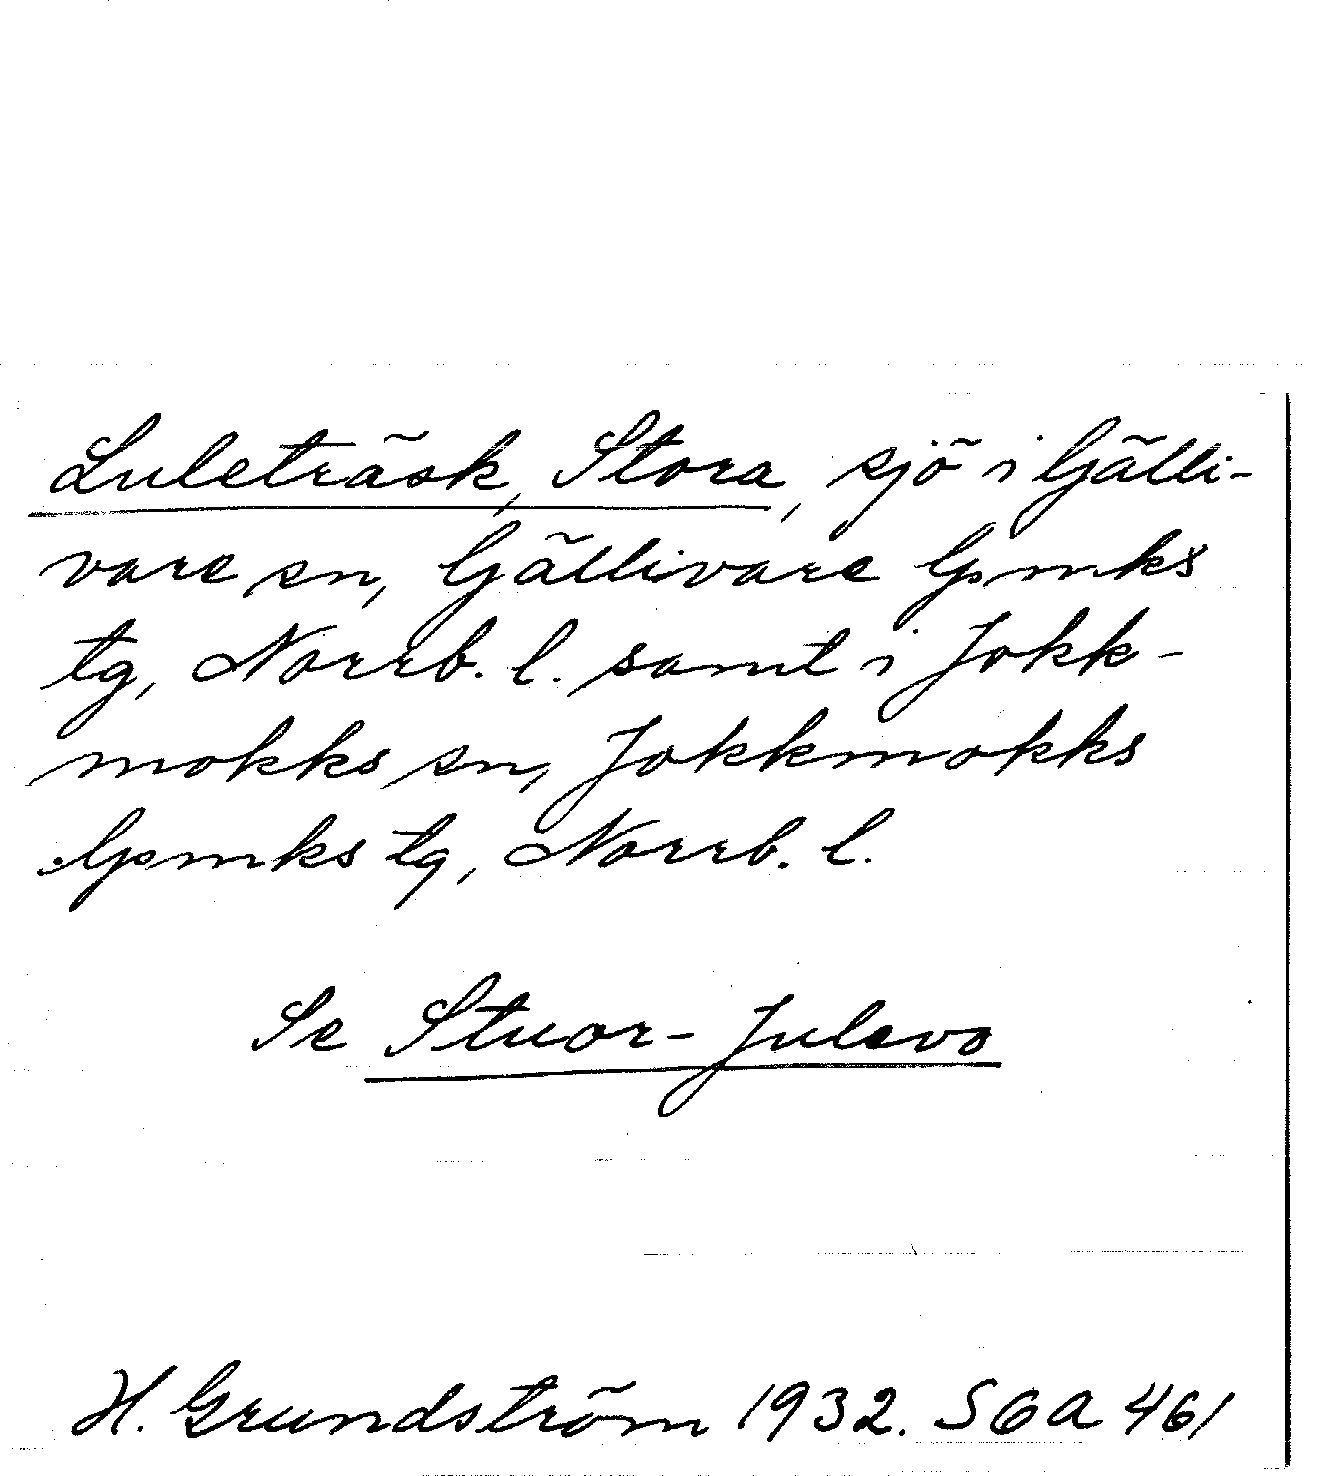 Luleträsk, Stora, sjö i Gälli-
vare sn, Gällivare lpmks
tg, Norrb. l. samt i Jokk-
mokks sn, Jokkmokks
lpmks tg, Norrb. l.
Se Stuor-Julevo
H. Grundström 1932. SOA 461